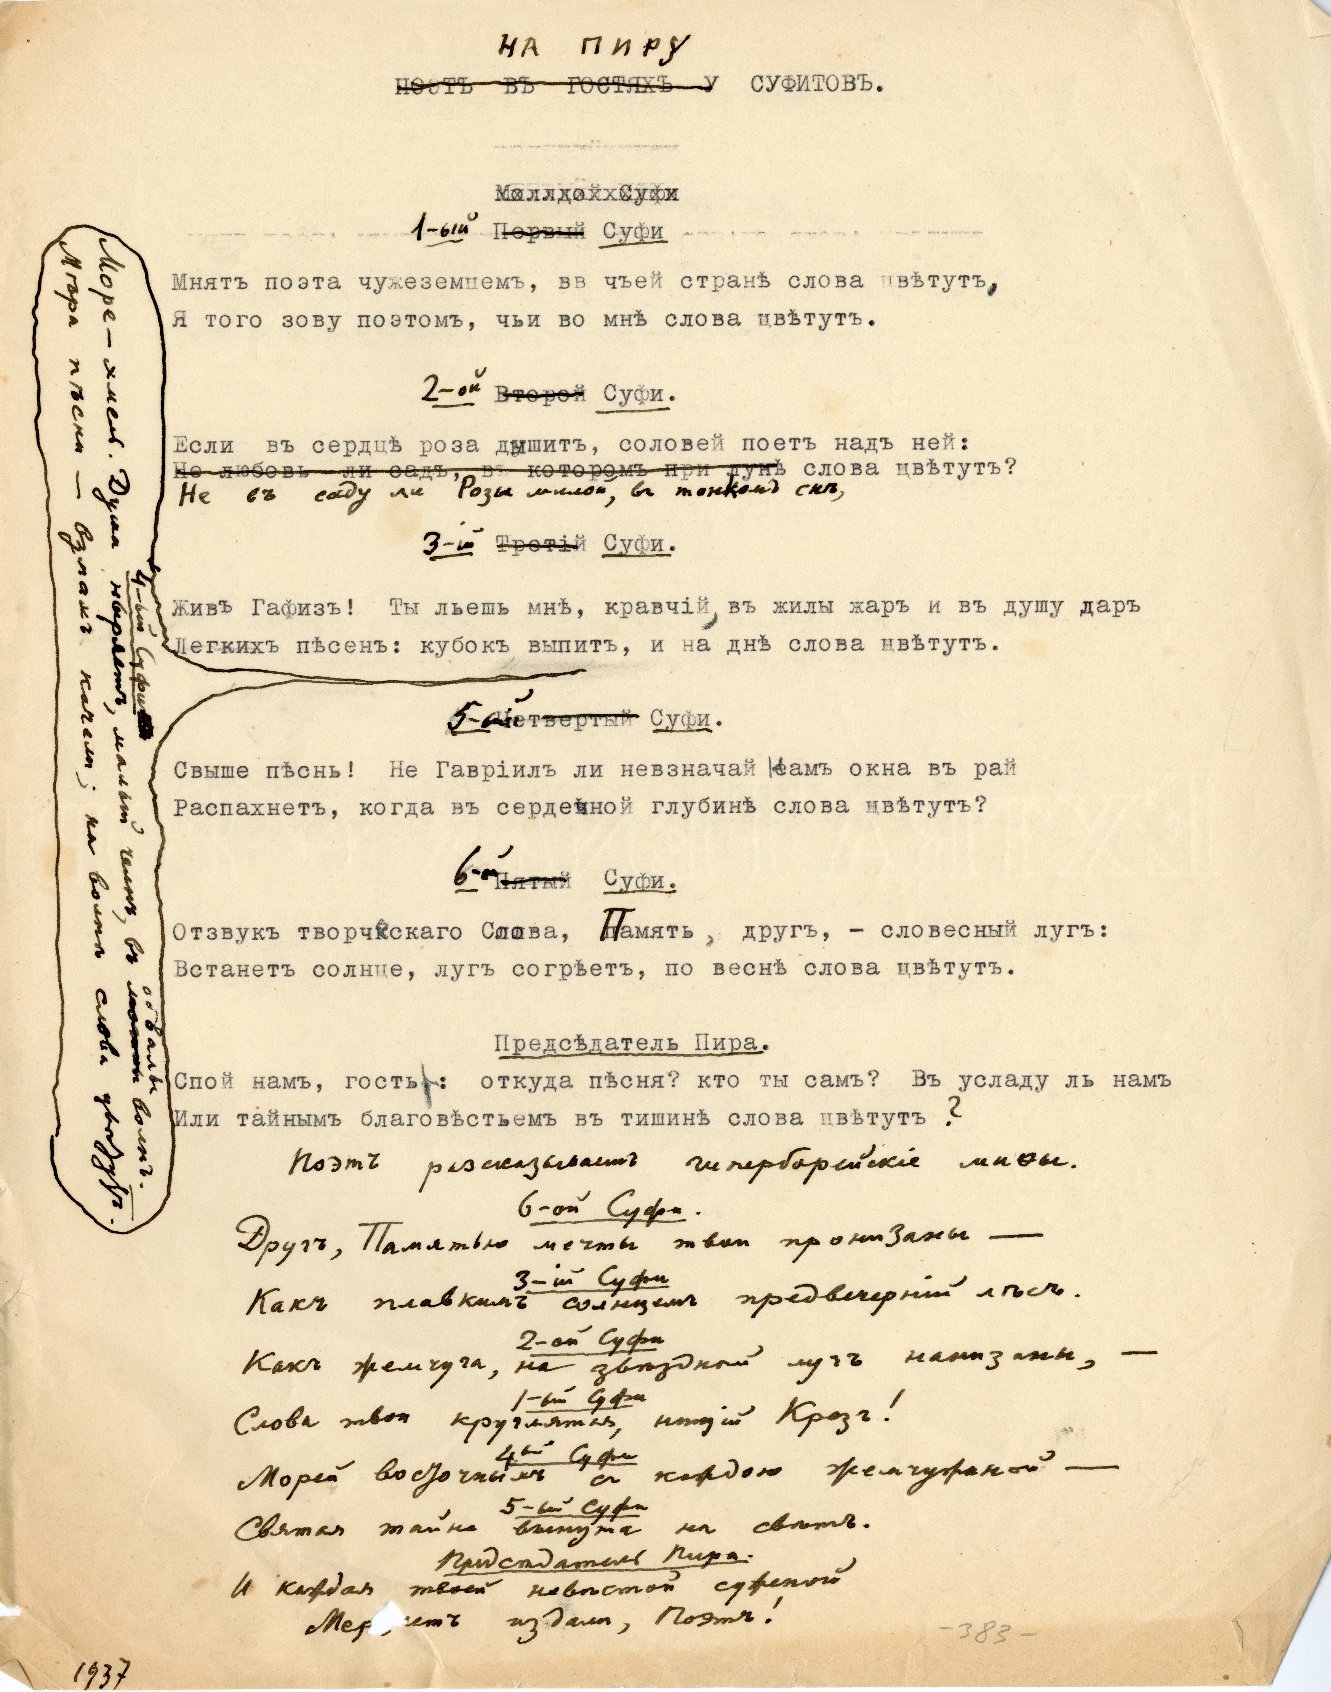 НА ПИРУ
ПОЭТЪ ВЪ ГОСТЯХЪ У СУФИТОВЪ.
1-ый Первый Суфи
Мнятъ поэта чужеземцемъ, вв чьей странѣ слова цвѣтутъ,
Я того зову поэтомъ, чьи во мнѣ слова цвѣтутъ.
2-ой Второй Суфи.
Если въ сердцѣ роза дышитъ, соловей поетъ надъ ней:
Не любовь ли садъ, въ которомъ при лунѣ слова цвѣтутъ?
Не въ саду ли Розы милой, въ тонкомъ снѣ,
3-ій Третій Суфи.
Живъ Гафизъ! Ты льешь мнѣ, кравчій, въ жилы жаръ и въ душу даръ
Легкихъ пѣсенъ: кубокъ выпитъ, и на днѣ слова цвѣтутъ.
4-ый Суфи
Море – хмель. Душа ныряетъ, малый челнъ, въ обвалы волнъ.
Мѣра пѣсни – взмахъ качели; на волнѣ слова цвѣтутъ.
5-ый Четвертый Суфи.
Свыше пѣснь! Не Гавріилъ ли невзначай намъ окна въ рай
Распахнетъ, когда въ сердечной глубинѣ слова цвѣтутъ?
6-ой Пятый Суфи.
Отзвукъ творческаго Слова, Память, другъ, – словесный лугъ:
Встанетъ солнце, лугъ согрѣетъ, по веснѣ слова цвѣтутъ.
Предсѣдатель Пира.
Спой намъ, гость: откуда пѣсня? кто ты самъ? Въ усладу ль намъ
Или тайнымъ благовѣстьемъ въ тишинѣ слова цвѣтутъ ?
Поэтъ разсказываетъ гиперборейскіе миѳы.
6-ой Суфи.
Другъ, Памятью мечты твои пронизаны —
3-ій Суфи
Какъ плавкимъ солнцемъ предвечерній лѣсъ.
2-ой Суфи
Какъ жемчуга, на звѣздный лучъ нанизаны, —
1-ый Суфи
Слова твои круглятся, нищій Крезъ!
4-ый Суфи
Морей восточныхъ съ каждою жемчужиной —
5-ый Суфи
Святая тайна вынута на свѣтъ.
Предсѣдатель Пира.
И каждая твоей невѣстой суженой
издали, Поэтъ!
-383-
1937